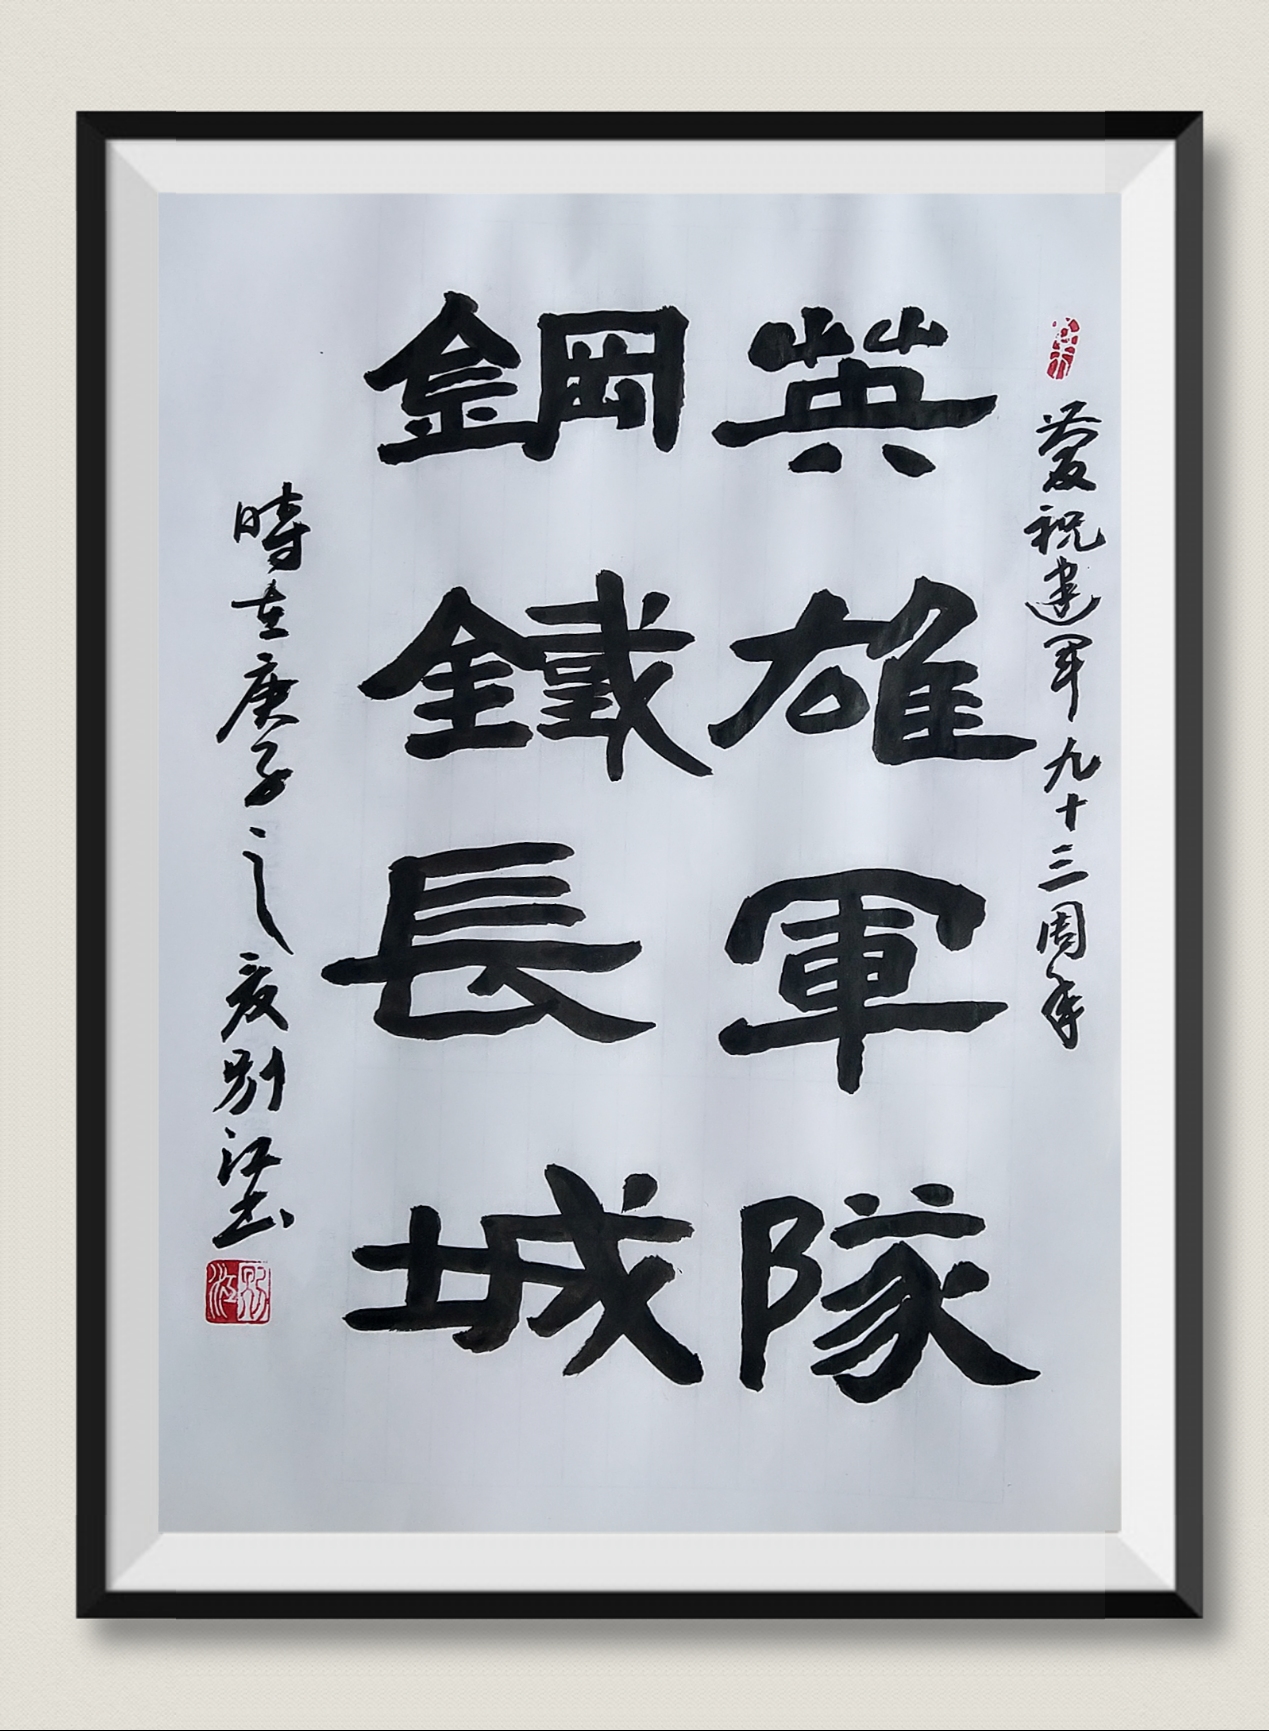 慶祝建軍九十三周年
英雄軍隊
鋼鐵長城
時在庚子之夏別江書